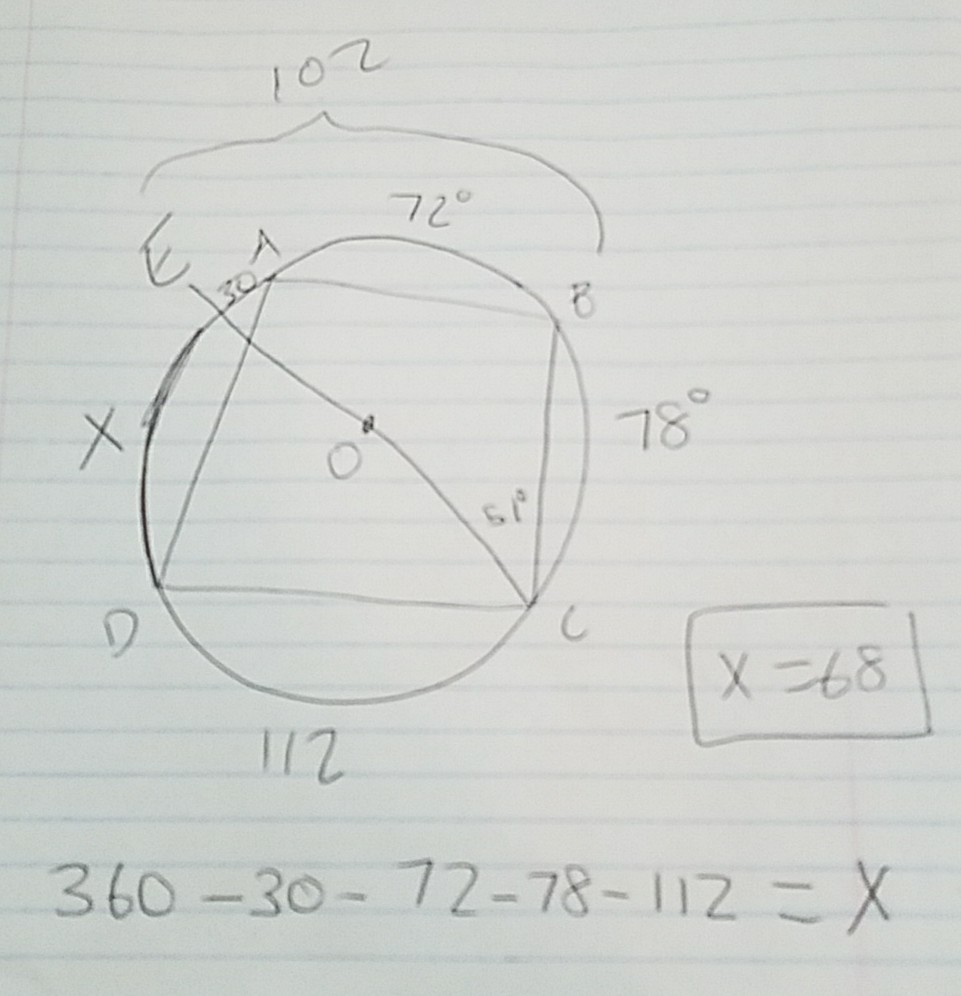 102
72°
E
30
A
B
X
78°
O
51°
D
C
X = 68
112
360 - 30 - 72 - 78 - 112 = X